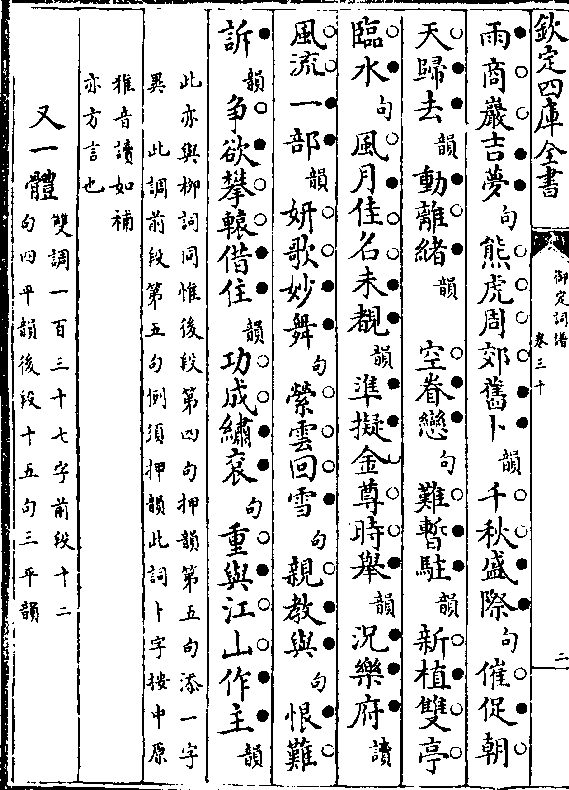 欽定四庫全書
御定詞譜
卷三十
二
雨商巖吉夢句熊虎周郊舊卜韻千秋盛際句催促朝
天歸去韻動離緒韻　空眷戀句難暫駐韻新植雙亭
臨水句風月佳名未覩韻準擬金尊時舉韻況樂府讀
風流一部韻妍歌妙舞句縈雲回雪句親教與句恨難
訴韻争欲攀轅借住韻功成繡衮句重與江山作主韻
此亦與柳詞同惟後段第四句押韻第五句添一字
異　此調前段第五句例須押韻此詞卜字按中原
雅音讀如補
亦方言也
又一體雙調一百三十七字前段十二
句四平韻後段十五句三平韻